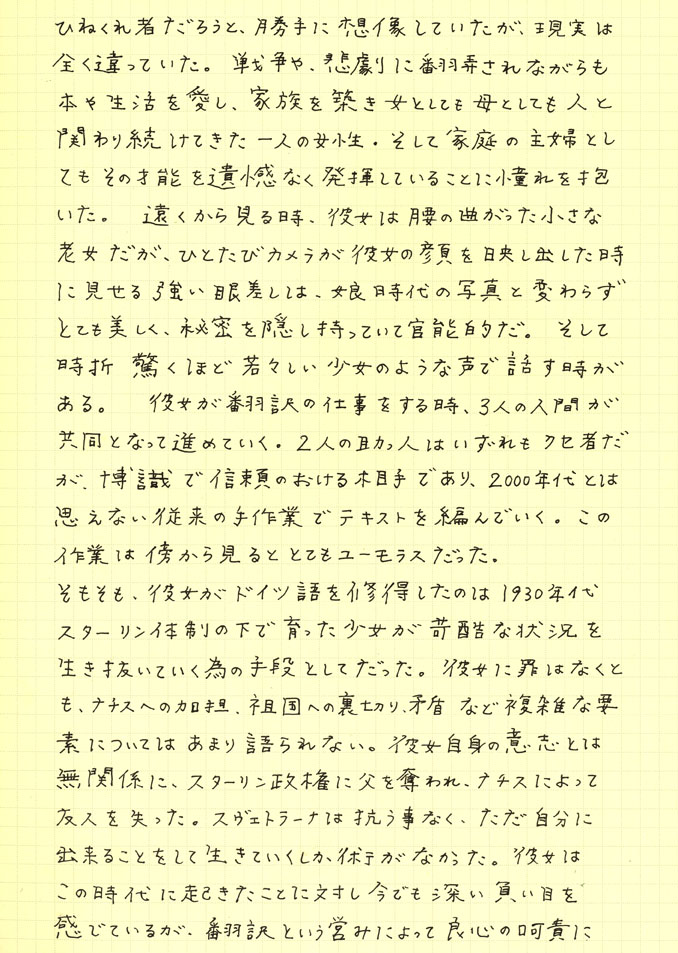 ひねくれ者だろうと、勝手に想像していたが、現実は
全く違っていた。 戦争や、悲劇に翻弄されながらも
本や生活を愛し、家族を築き女としても母としても人と
関わり続けてきた一人の女性。そして家庭の主婦とし
てもその才能を遺憾なく発揮していることに憧れを抱
いた。 遠くから見る時、彼女は腰の曲がった小さな
老女だが、ひとたびカメラが彼女の顔を映し出した時
に見せる強い眼差しは、娘時代の写真と変わらず
とても美しく、秘密を隠し持っていて官能的だ。 そして
時折 驚くほど若々しい少女のような声で話す時が
ある。 彼女が翻訳の仕事をする時、3人の人間が
共同となって進めていく。2人の助っ人はいずれもクセ者だ
が、博識で信頼のおける相手であり、2000年代とは
思えない従来の手作業でテキストを編んでいく。この
作業は傍から見るととてもユーモラスだった。
そもそも、彼女がドイツ語を修得したのは1930年代
スターリン体制の下で育った少女が苛酷な状況を
生き抜いていく為の手段としてだった。彼女に罪はなくと
も、ナチスへの加担、祖国への裏切り、矛盾 など複雑な要
素についてはあまり語られない。彼女自身の意志とは
無関係に、スターリン政権に父を奪われ、ナチスによって
友人を失った。スヴェトラーナは抗う事なく、ただ自分に
出来ることをして生きていくしか術がなかった。彼女は
この時代に起きたことに対し今でも深い負い目を
感じているが、翻訳という営みによって良心の呵責に